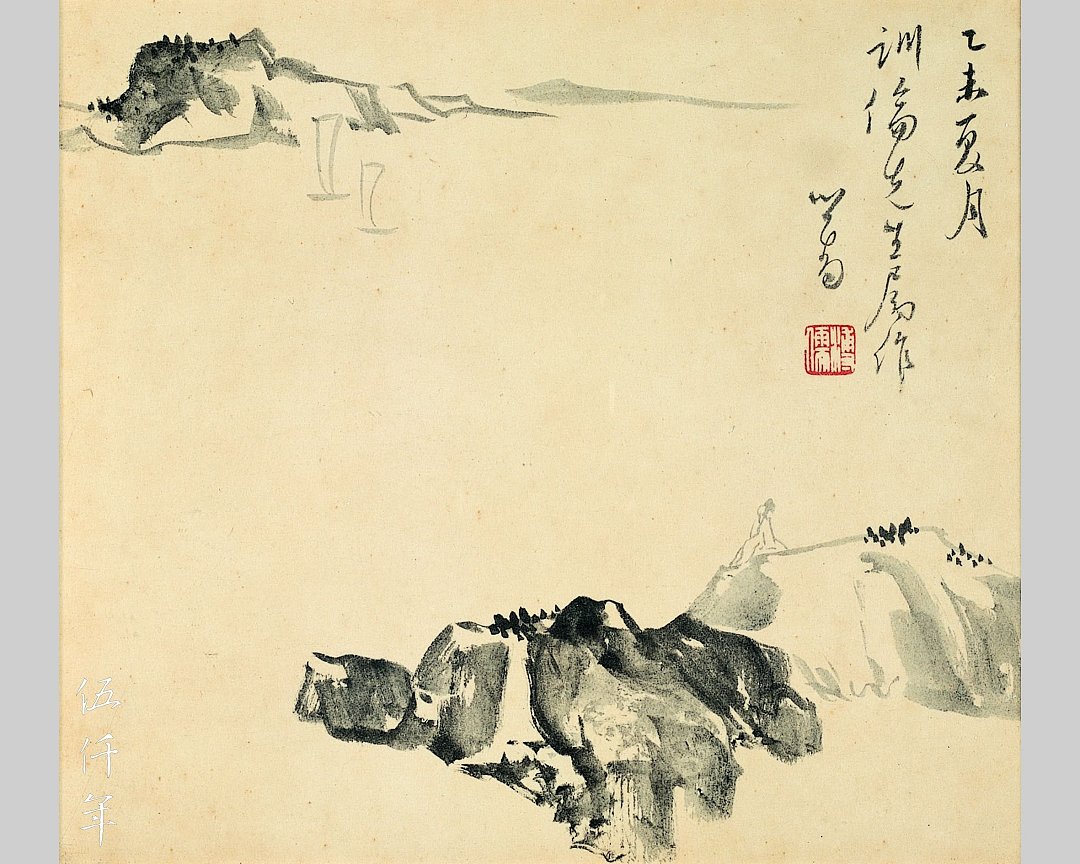 乙未夏月
訓先生屬作
心畬
溥儒
伍仟年